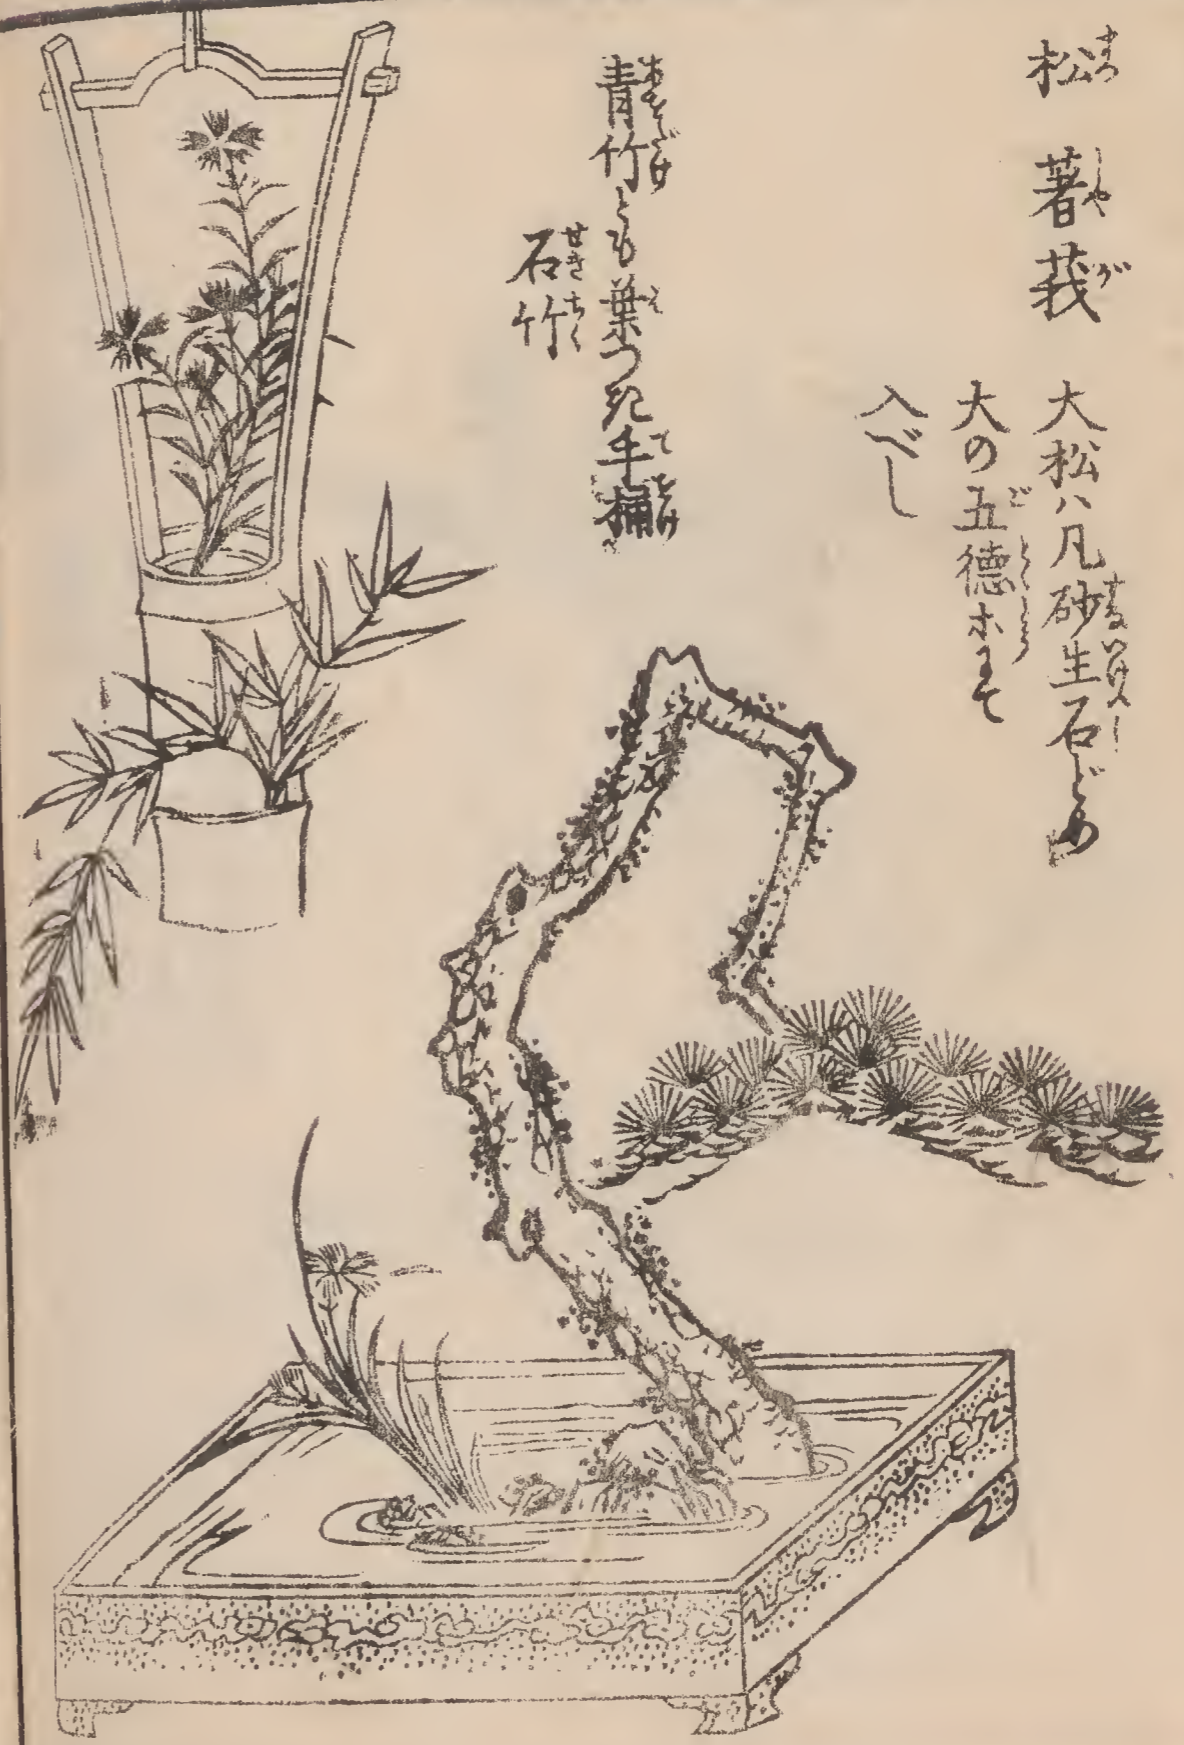 松 著莪
大松ハ凡砂生石どめ
大の五徳ホにて
入べし
青竹とも葉つき手桶
石竹